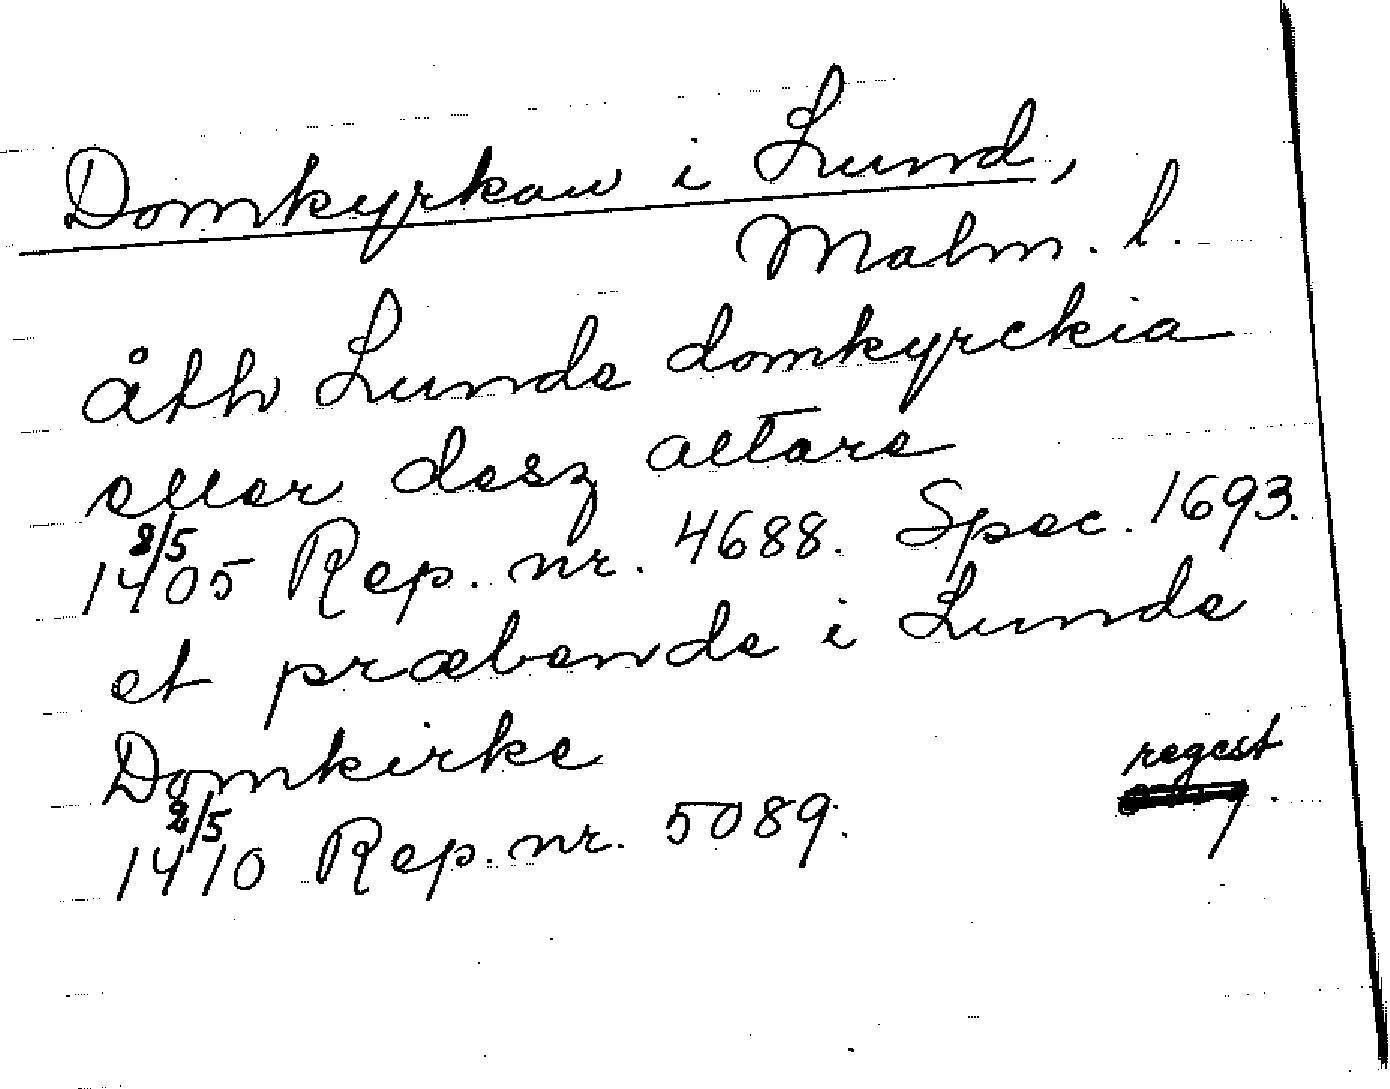 Domkyrkan i Lund,
Malm. l.
åth Lunde domkyrckia
eller desz altare
8/5
1405 Rep. nr. 4688. Spec. 1693.
et præbende i Lunde
Domkirke
regest
2/5
1410 Rep. nr. 5089.